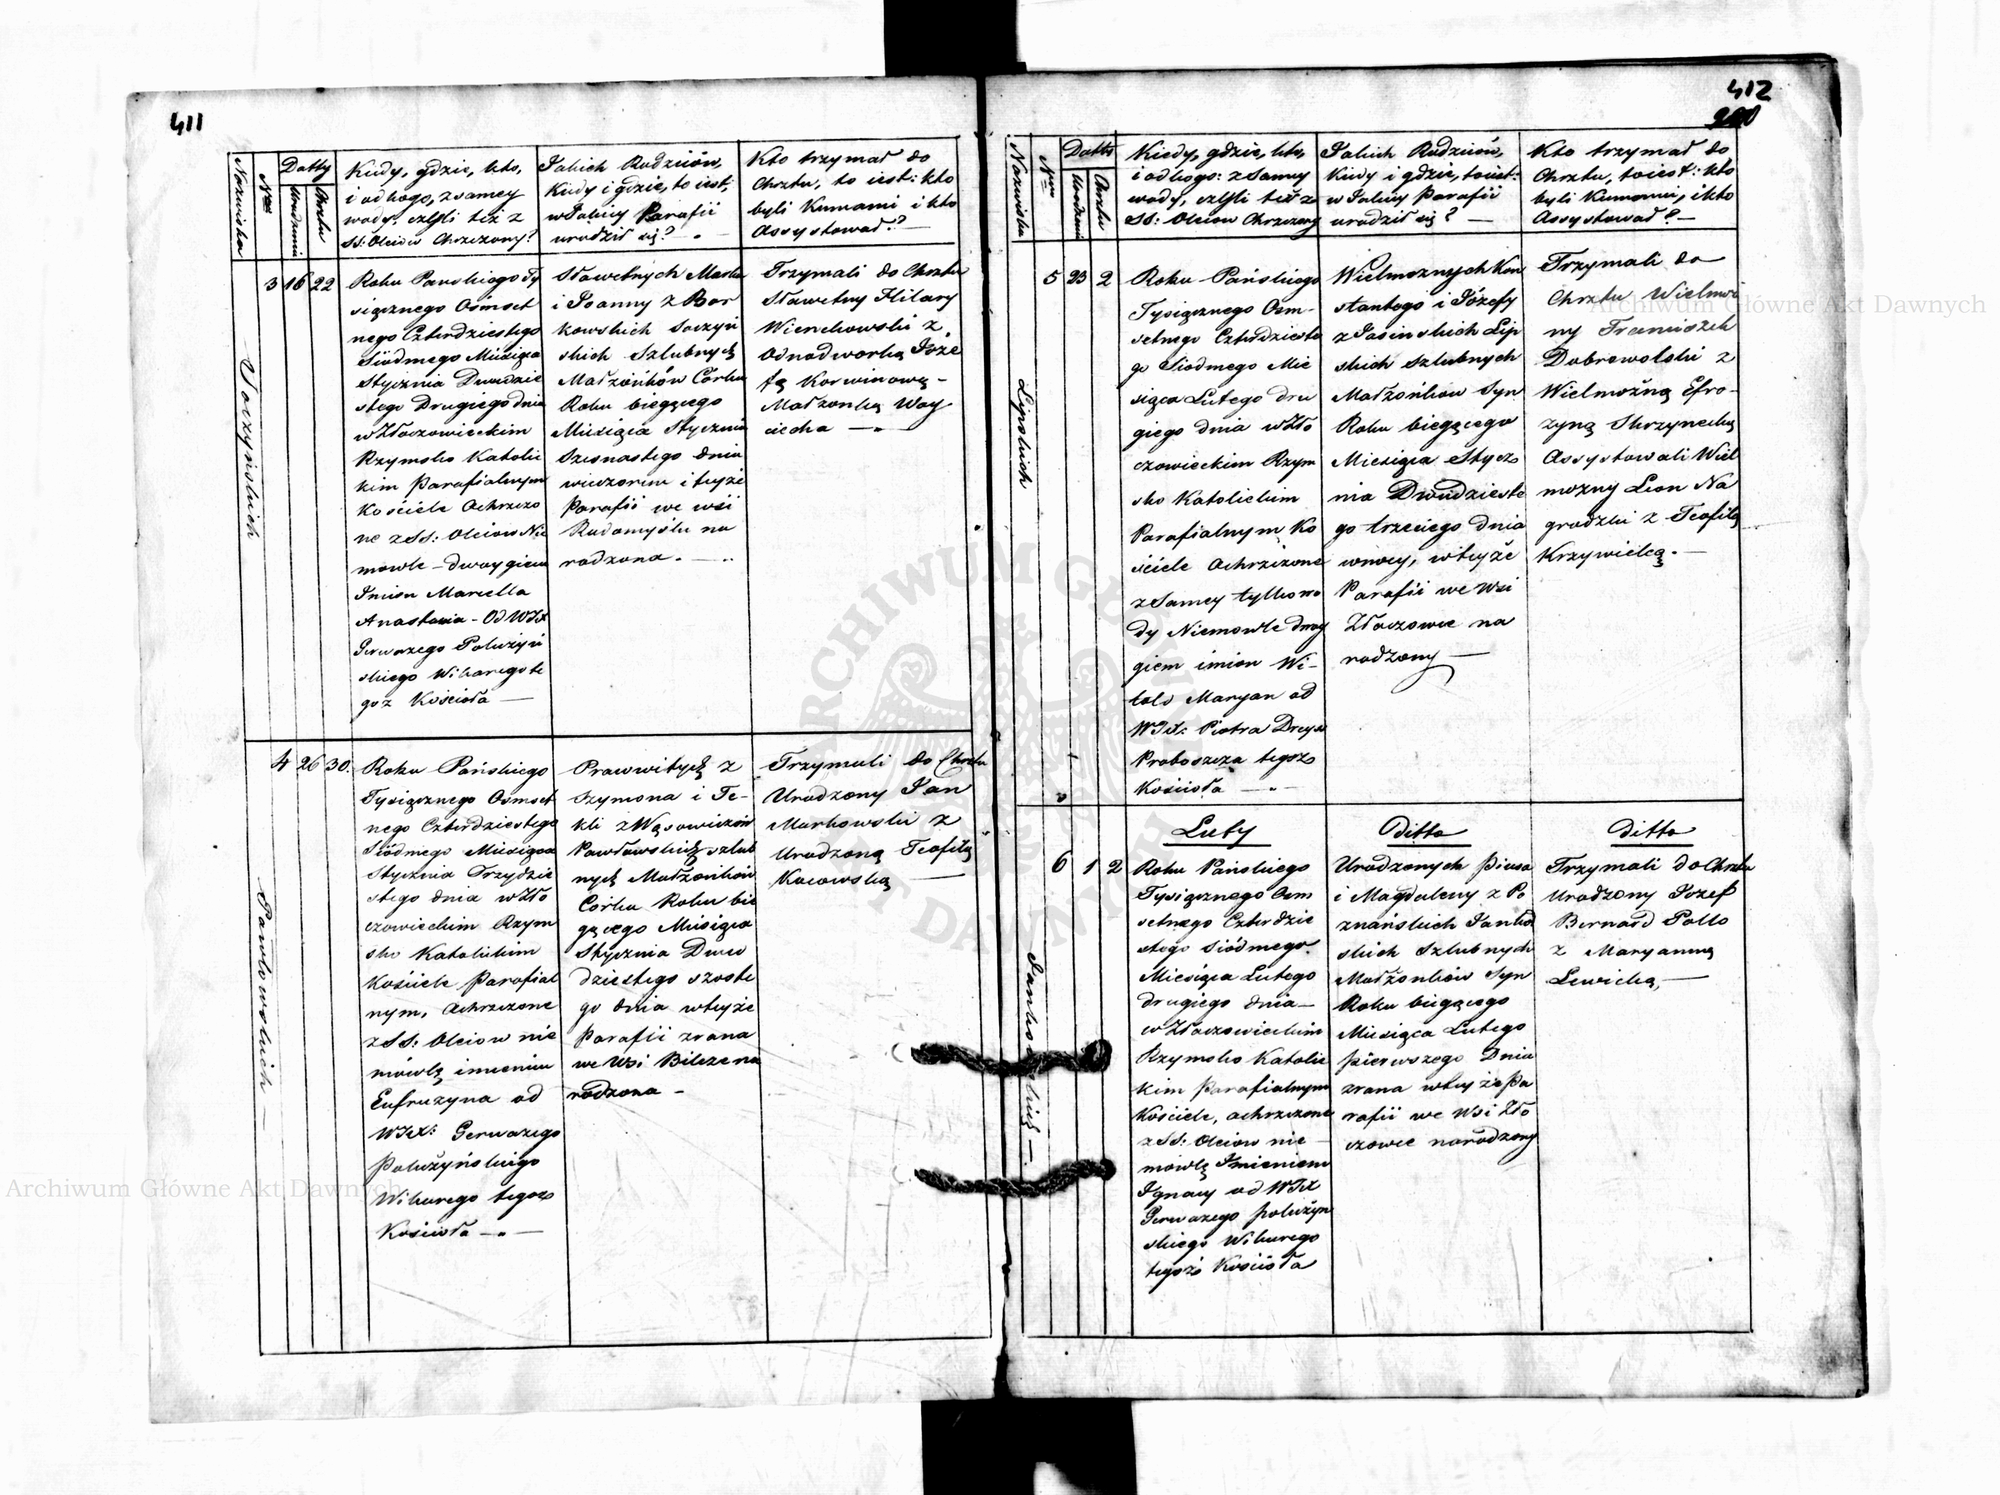 411
Nazwiska
Nrus
Datty
Urodzenia
Chrztu
Kiedy, gdzie, kto,
i od kogo, z samey
wody, czyli też z
SS: Oleiow Chrzczony?
Jakich Rodziców,
Kiedy i gdzie, to iest,
w Jakiey Parafii
urodził się? -
Kto trzymał do
Chrztu, to iest: kto
byli Kumami i kto
Assystował? -
Soczyńskich
3 16 22
Roku Panskiego Ty
siącznego Osmset
nego Czterdziestego
Siódmego Miesiąca
Stycznia Dwudzie
stego Drugiego dnia
w Złoczowieckim
Rzymsko Katolic
kim Parafialnym
Kościele Ochrzczo
ne z SS: Oleiow Nie
mowle - dwoygiem
Imion Marcella
Anastazia - Od WJX
Gerwazego Połużyń
skiego Wikarego te
goz Kościoła -
Sławetnych Marka
i Joanny z Bor
kowskich Soczyń
skich Szlubnych
Małżonków Córka
Roku biegącego
Miesiąca Stycznia
Szesnastego dnia
wieczorem i teyże
Parafii we wsi
Radomyślu na
rodzona. -
Trzymali do Chrztu
Sławetny Hilary
Wierchowski z
Odnodworką Józe
fą Korwinową -
Małżonką Woy
ciecha -
Pawłowskich -
4 26 30.
Roku Pańskiego
Tysiącznego Osmset
nego Czterdziestego
Siódmego Miesiąca
Stycznia Trzydzie
stego dnia w Zło
czowieckim Rzym
sko Katolickim
Kościele Parafial
nym, Ochrzczone
z SS: Oleiow nie
mowlę imieniem
Eufruzyna od
WJX: Gerwazego
Połużyńskiego
Wikarego tegoż
Kościoła -
Prawwitych z
Szymona i Te-
kli z Wąsowiczów
Pawłowskich szlub
nych Małżonków
Córka Roku bie
gącego Miesiąca
Stycznia Dwu
dziestego szoste
go dnia w teyże
Parafii zrana
we Wsi Bilcze na
rodzona -
Trzymali do Chrztu
Urodzony Jan
Markowski z
Urodzoną Teofilą
Kosowską -
412
Nazwiska
Nrus
Datta
Urodzenia
Chrztu
Kiedy, gdzie, kto,
i od kogo: z samey
wody, czyli też z
SS: Oleiow Chrzczony
Jakich Rodziców,
Kiedy i gdzie, to iest:
w Jakiey Parafii
urodził się? -
Kto trzymał do
Chrztu, to iest: kto
byli Kumami, i kto
Assystował? -
Lipskich
5 23 2
Roku Pańskiego
Tysiącznego Osm-
setnego Czterdzieste
go Siódmego Mie
siąca Lutego dru
giego dnia w Zło
czowieckim Rzym
sko Katolickim
Parafialnym Ko
ściele Ochrzczone
z Samey tylko wo
dy Niemowle dwoy
giem imion Wi-
told Maryan od
WJX: Piotra Dreysa
Proboszcza tegoż
Kościoła -
Wielmożnych Kon
stantego i Józefy
z Jasinskich Lip
skich szlubnych
Małżonków Syn
Roku biegącego
Miesiąca Stycz
nia Dwudzieste
go trzeciego dnia
w nocy, w teyże
Parafii we Wsi
Złoczowce na
rodzony -
Trzymali do
Chrztu Wielmoż
ny Franciszek
Dobrowolski z
Wielmożną Efro-
zyną Skrzynecką
Assystowali Wiel
możny Leon Na
grodzki z Teofilą
Krzywicką. -
Luty
Ditto
Ditto
Jankowskich -
6 1 2
Roku Pańskiego
Tysiącznego Osm
setnego Czterdzie
stego Siódmego
Miesiąca Lutego
drugiego dnia -
w Złoczowieckim
Rzymsko Katolic
kim Parafialnym
Kościele, ochrzczone
z SS: Oleiow nie
mowlę Imieniem
Ignacy od WJX
Gerwazego Połużyń
skiego Wikarego
tegoż Kościoła
Urodzonych Piusa
i Magdaleny z Po
znańskich Jankow
skich Szlubnych
Małżonków Syn
Roku biegącego
Miesiąca Lutego
pierwszego Dnia
zrana w teyże Pa
rafii we Wsi Zło
czowce narodzony
Trzymali do Chrztu
Urodzony Jozef
Bernard Pollo
z Maryanną
Lewicką, -
ARCHIWUM GŁÓWNE AKT DAWNYCH
Archiwum Główne Akt Dawnych
Archiwum Główne Akt Dawnych